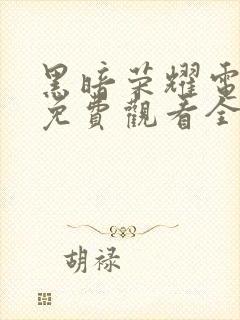 黑暗荣耀電
免費觀看全
胡禄